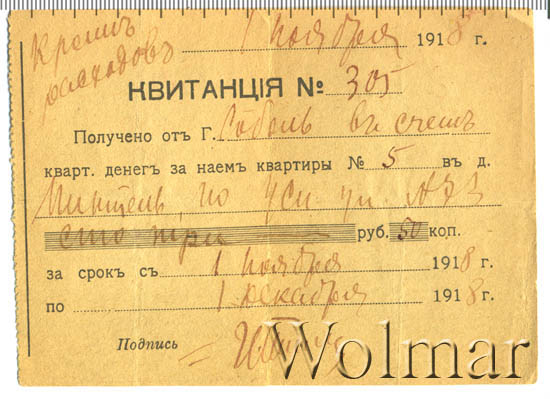 Кредит
расходовъ
1 ноября 1918 г.
КВИТАНЦІЯ № 305
Получено отъ Г. Соболь въ счетъ
кварт. денегъ за наемъ квартиры № 5 въ д.
по ул. № 3
сто три руб. 50 коп.
за срокъ съ 1 ноября 1918 г.
по 1 декабря 1918 г.
Подпись
Wolmar